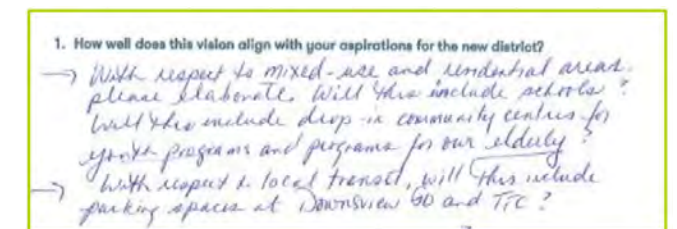 1. How well does this vision align with your aspirations for the new district?
→ With respect to mixed-use and residential areas.
please elaborate. Will this include schools?
Will this include drop-in community centres for
youth programs and programs for our elderly?
→ With respect to local transit, will this include
parking spaces at Downsview GO and TTC?